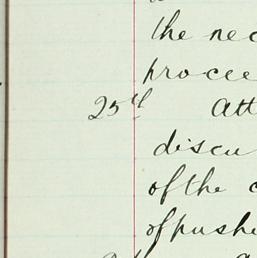 the nec
procee
25th Att
discu
of the c
of pushe